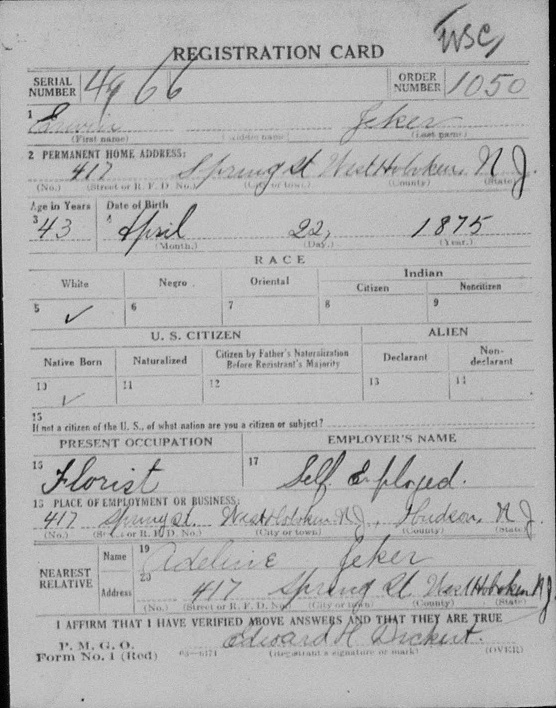 WSC
REGISTRATION CARD
SERIAL NUMBER 4966 ORDER NUMBER 1050
1 Erwin Jeker
(First name) (Middle name) (Last name)
2 PERMANENT HOME ADDRESS:
417 Spring St West Hoboken, N J.
(No.) (Street or R. F. D. No.) (City or town) (County) (State)
Age in Years Date of Birth
3 43 4 April 22, 1875
(Month.) (Day.) (Year.)
RACE
White Negro Oriental Indian
Citizen Noncitizen
5 ✓ 6 7 8 9
U. S. CITIZEN ALIEN
Native Born Naturalized Citizen by Father's Naturalization Before Registrant's Majority Declarant Non-declarant
10 ✓ 11 12 13 14
15
If not a citizen of the U. S., of what nation are you a citizen or subject?
PRESENT OCCUPATION EMPLOYER'S NAME
16 Florist 17 Self Employed.
18 PLACE OF EMPLOYMENT OR BUSINESS:
417 Spring St. West Hoboken N J, Hudson, N J.
(No.) (Street or R. F. D. No.) (City or town) (County) (State)
NEAREST RELATIVE Name 19 Adeline Jeker
Address 20 417 Spring St West Hoboken N J.
(No.) (Street or R. F. D. No.) (City or town) (County) (State)
I AFFIRM THAT I HAVE VERIFIED ABOVE ANSWERS AND THAT THEY ARE TRUE
P. M. G. O. Edward H
Form No. 1 (Red) 03-6171 (Registrant's signature or mark) (OVER)